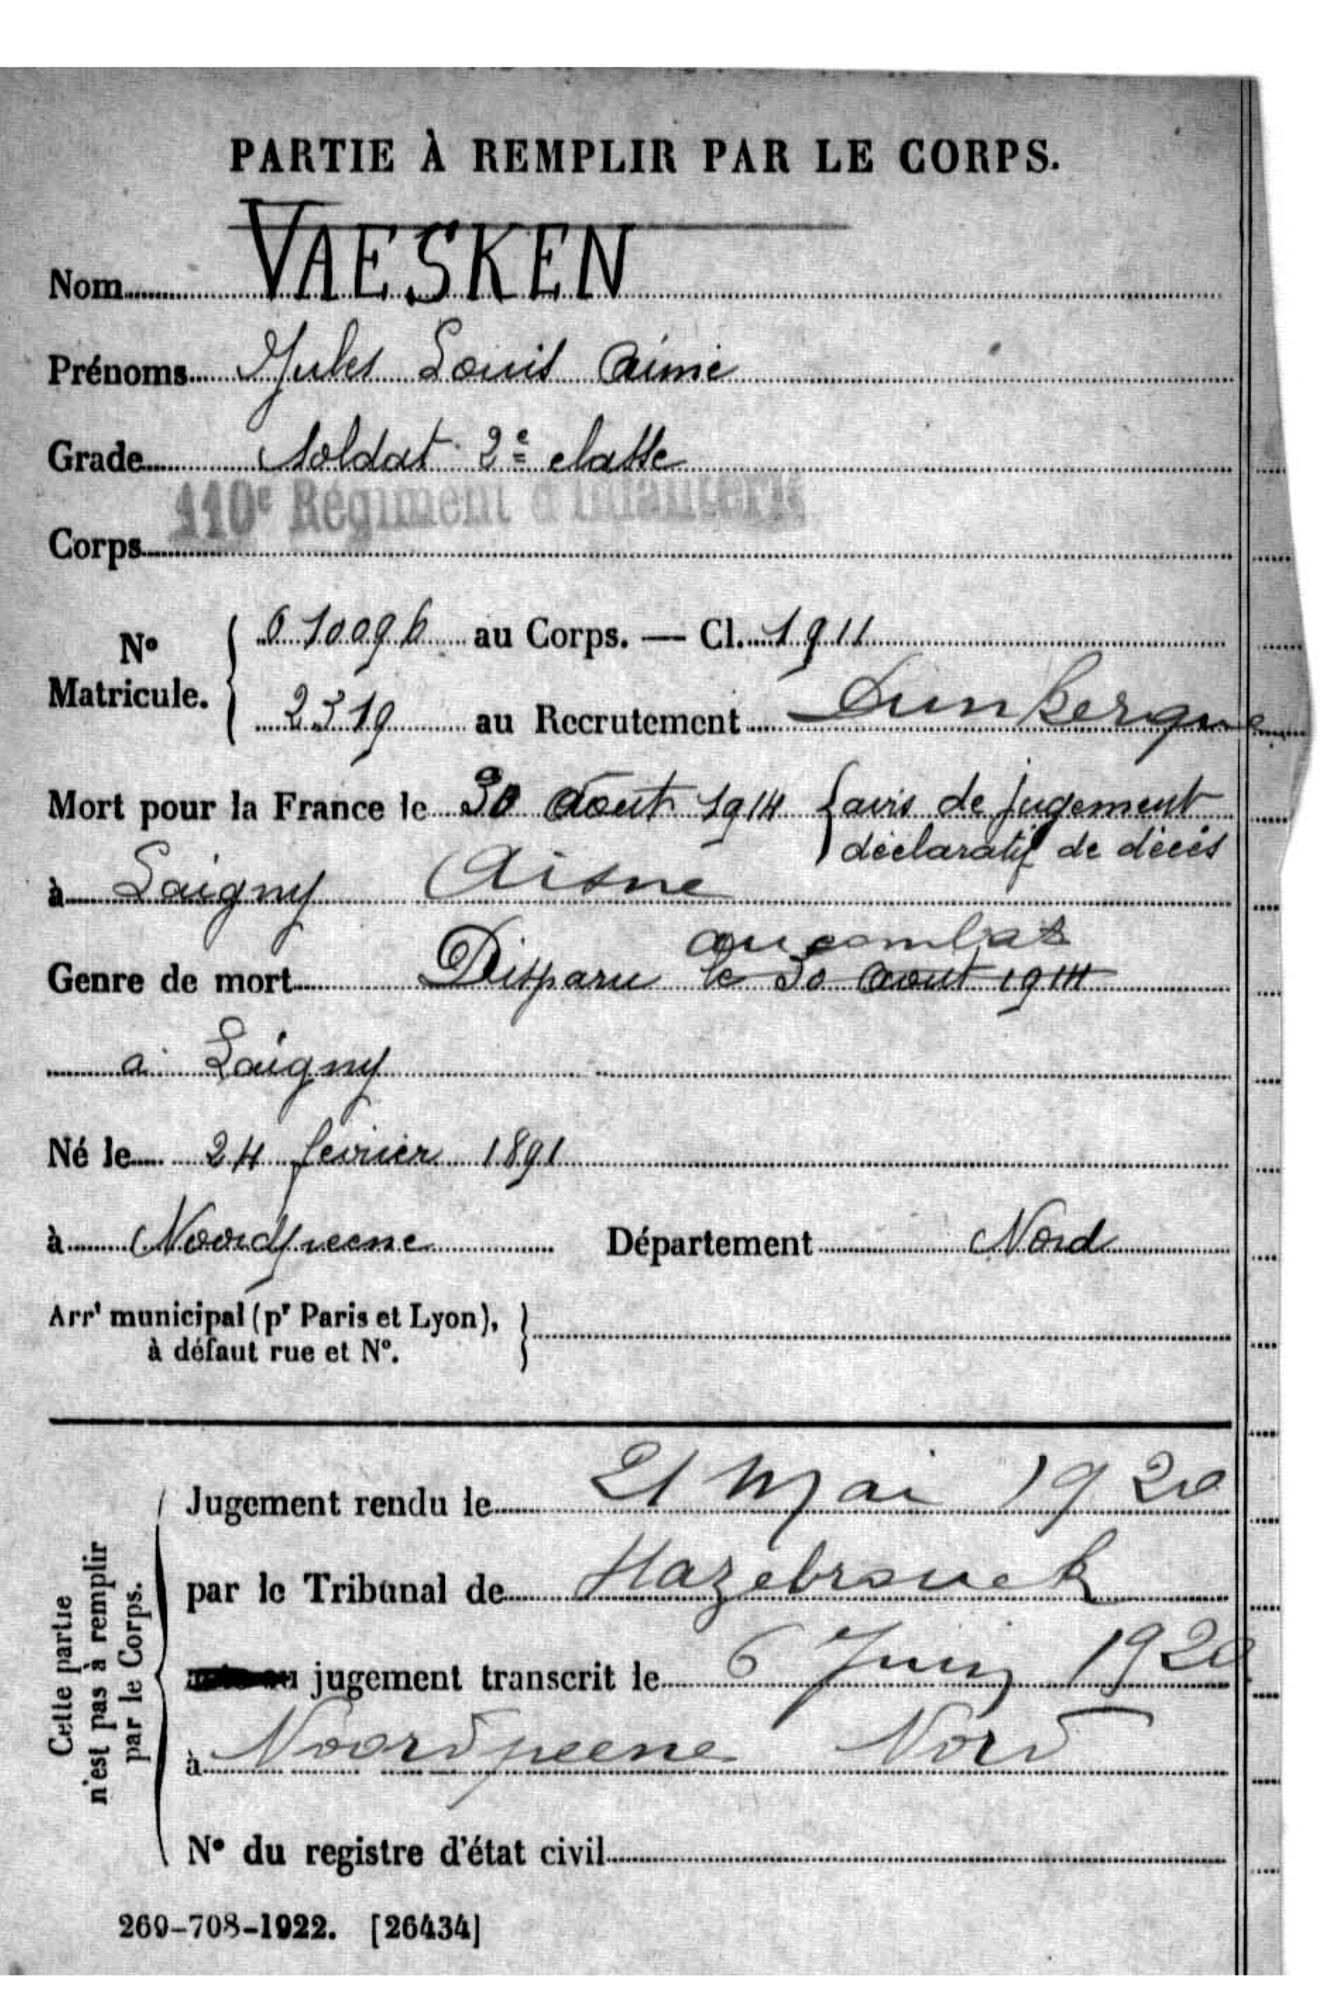 PARTIE À REMPLIR PAR LE CORPS.
Nom VAESKEN
Prénoms Jules Louis Aimé
Grade Soldat 2e classe
Corps 110e Régiment d'Infanterie
No Matricule. { 010096 au Corps. — Cl. 1911
2319 au Recrutement Dunkerque
Mort pour la France le 30 août 1914 { avis de jugement
déclaratif de décès
à Laigny Aisne
au combat
Genre de mort Disparu le 30 août 1914
à Laigny
Né le 24 février 1891
à Noordpeene Département Nord
Arrt municipal (pr Paris et Lyon),
à défaut rue et No. }
Cette partie
n'est pas à remplir
par le Corps.
Jugement rendu le 21 Mai 1920
par le Tribunal de Hazebrouck
jugement transcrit le 6 Juin 1920
à Noordpeene Nord
No du registre d'état civil
269-708-1922. [26434]